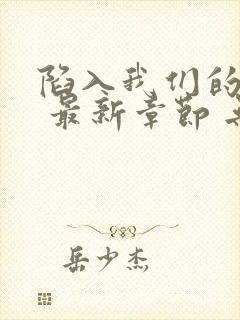 陷入我们的
最新章节
岳少杰